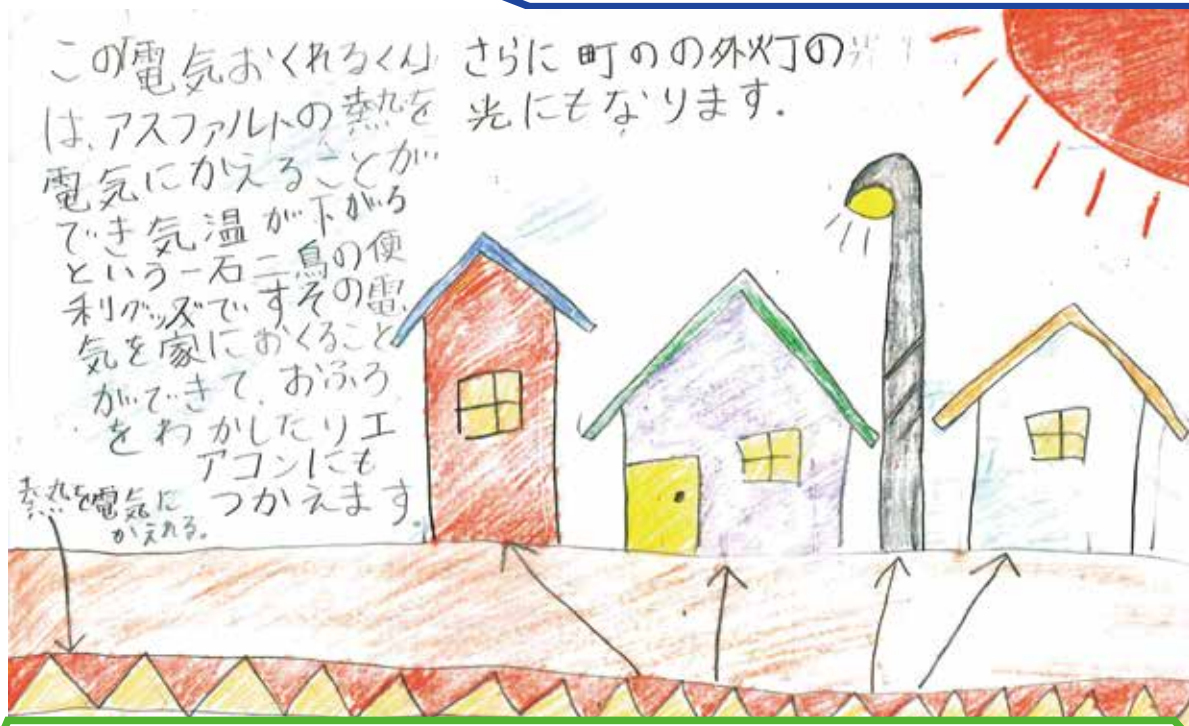 この「電気おくれるくん」
は、アスファルトの熱を
電気にかえることが
でき気温が下がる
という一石二鳥の便
利グッズですその電
気を家におくること
ができて、おふろ
をわかしたりエ
アコンにも
つかえます。
さらに町のの外灯の
光にもなります.
熱を電気に
かえれる。